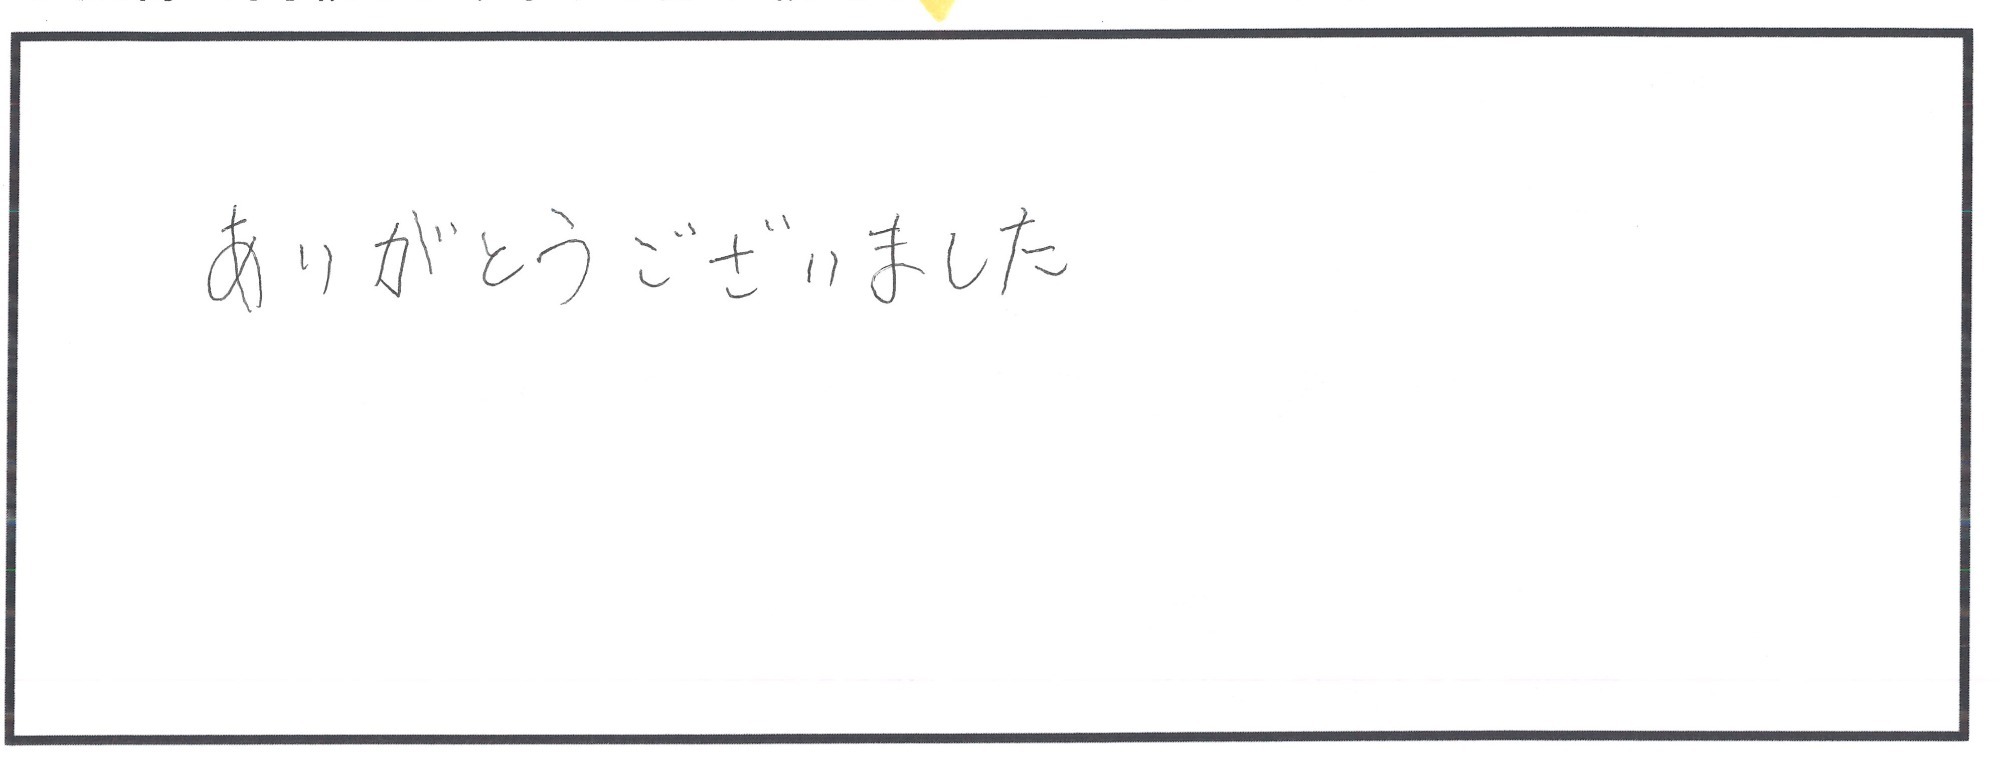 ありがとうございました